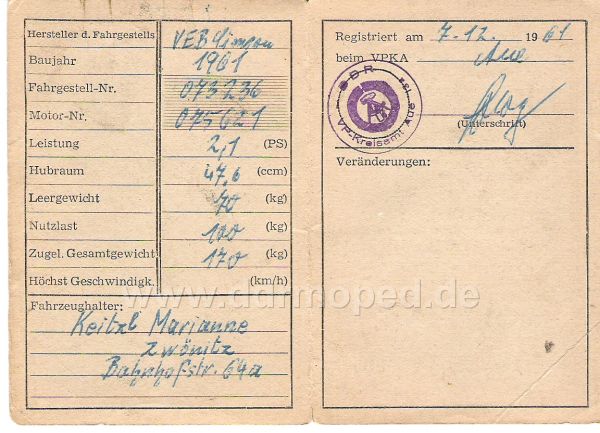 Hersteller d. Fahrgestells VEB Simson
Baujahr 1961
Fahrgestell-Nr. 073236
Motor-Nr. 075621
Leistung 2,1 (PS)
Hubraum 47,6 (ccm)
Leergewicht 70 (kg)
Nutzlast 100 (kg)
Zugel. Gesamtgewicht 170 (kg)
Höchst Geschwindigk. (km/h)
Fahrzeughalter:
Marianne
Zwönitz
Bahnhofstr. 64a
Registriert am 7.12. 1961
beim VPKA Aue
DDR
VP-Kreisamt Aue
(Unterschrift)
Veränderungen:
www.ddrmoped.de